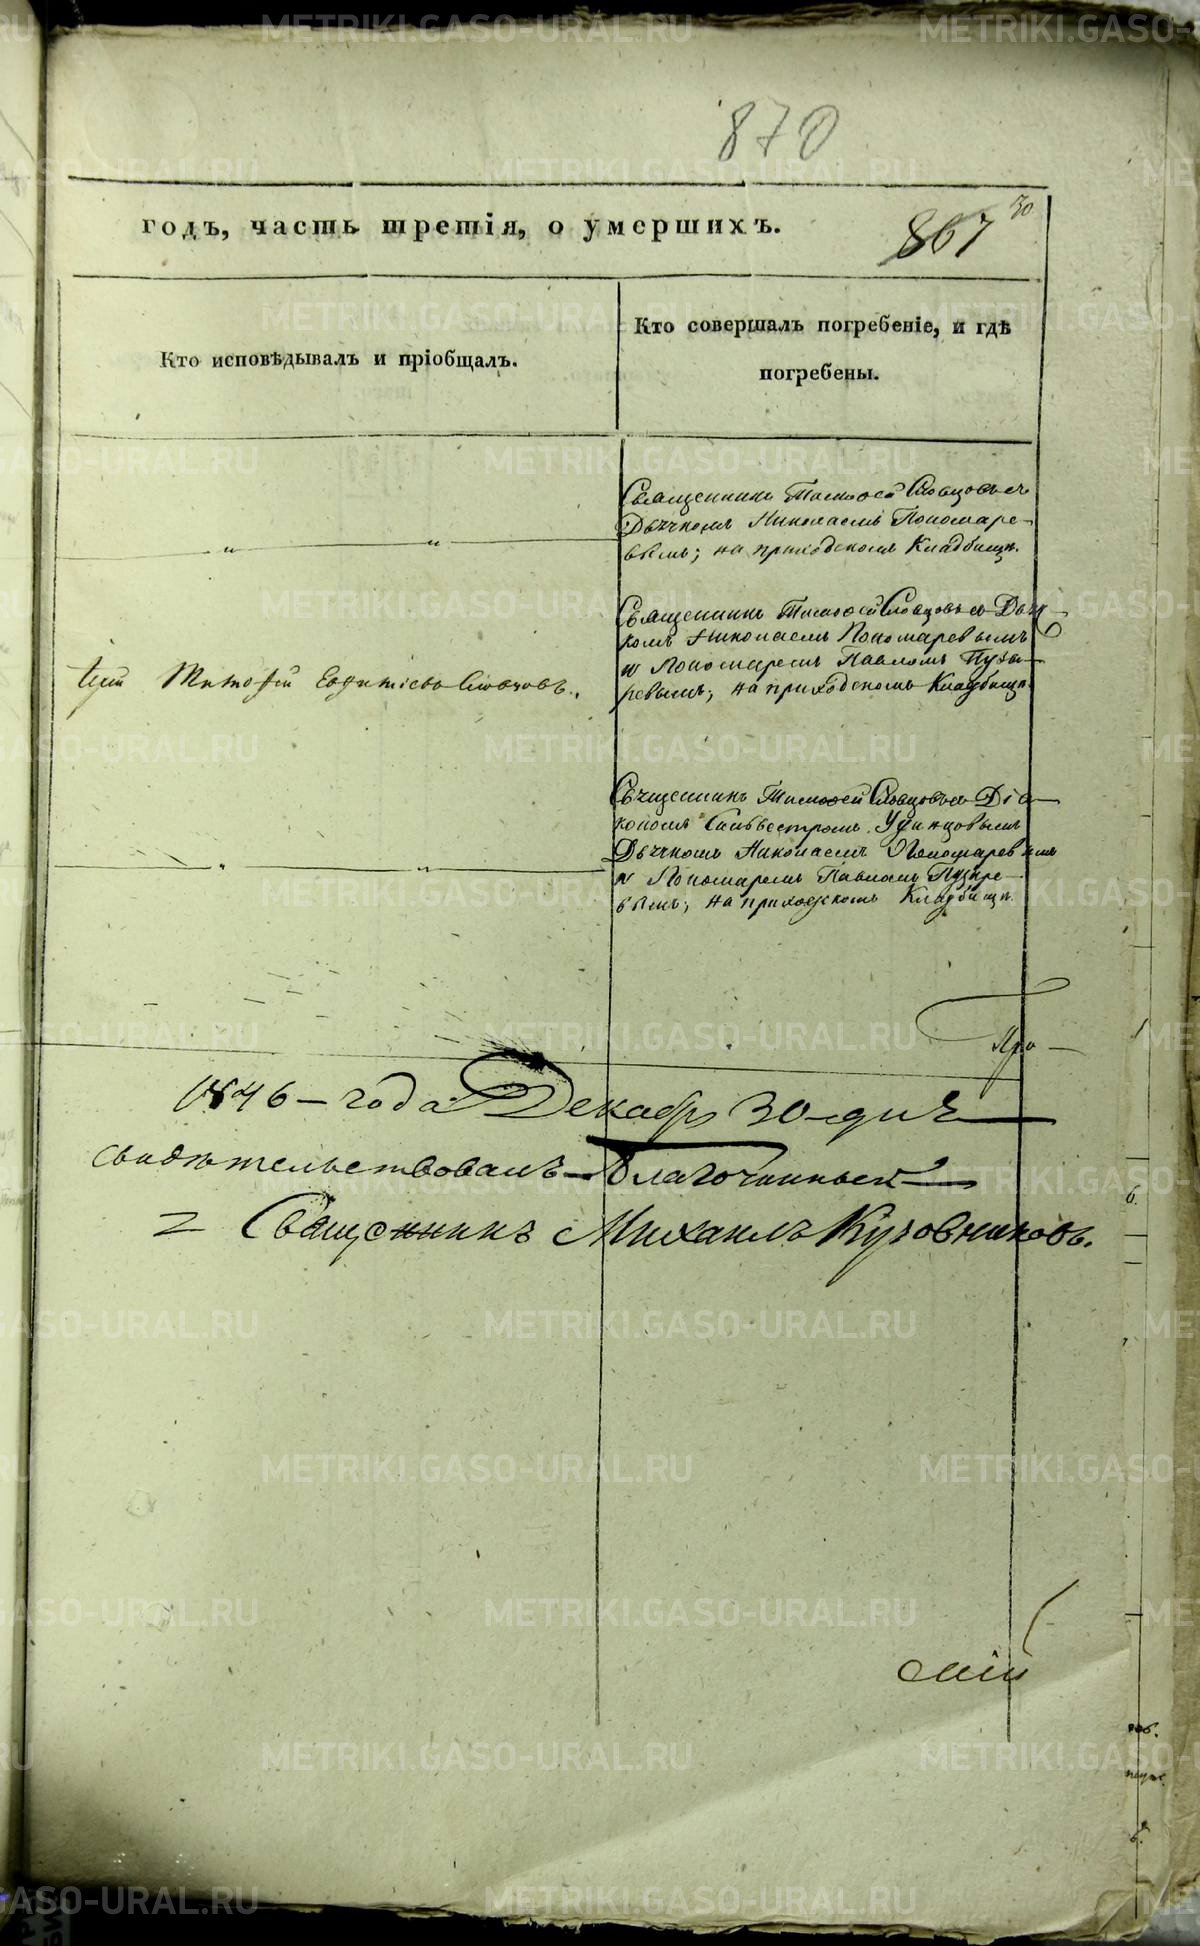 870
годъ, часть третія, о умершихъ.
867
30
Кто исповѣдывалъ и пріобщалъ.
Кто совершалъ погребеніе, и гдѣ
погребены.
Священникъ Тимофей Словцовъ съ
Дьячкомъ Николаемъ Пономаре-
вымъ; на приходскомъ Кладбищѣ.
Священникъ Тимофей Словцовъ съ Дьяч-
комъ Николаемъ Пономаревымъ
и Пономаремъ Павломъ Пузы-
ревымъ; на приходскомъ Кладбищѣ.
Тимофей Словцовъ.
Священникъ Тимофей Словцовъ съ Діа-
кономъ Сильвестромъ Удинцовымъ
Дьячкомъ Николаемъ Пономаревымъ
и Пономаремъ Павломъ Пузыре-
вымъ; на приходскомъ Кладбищѣ.
1846 – года Декабр 30 – дня
свидѣтельствовалъ – Благочинный
Священникъ Михаилъ Кузовниковъ.
METRIKI.GASO-URAL.RU